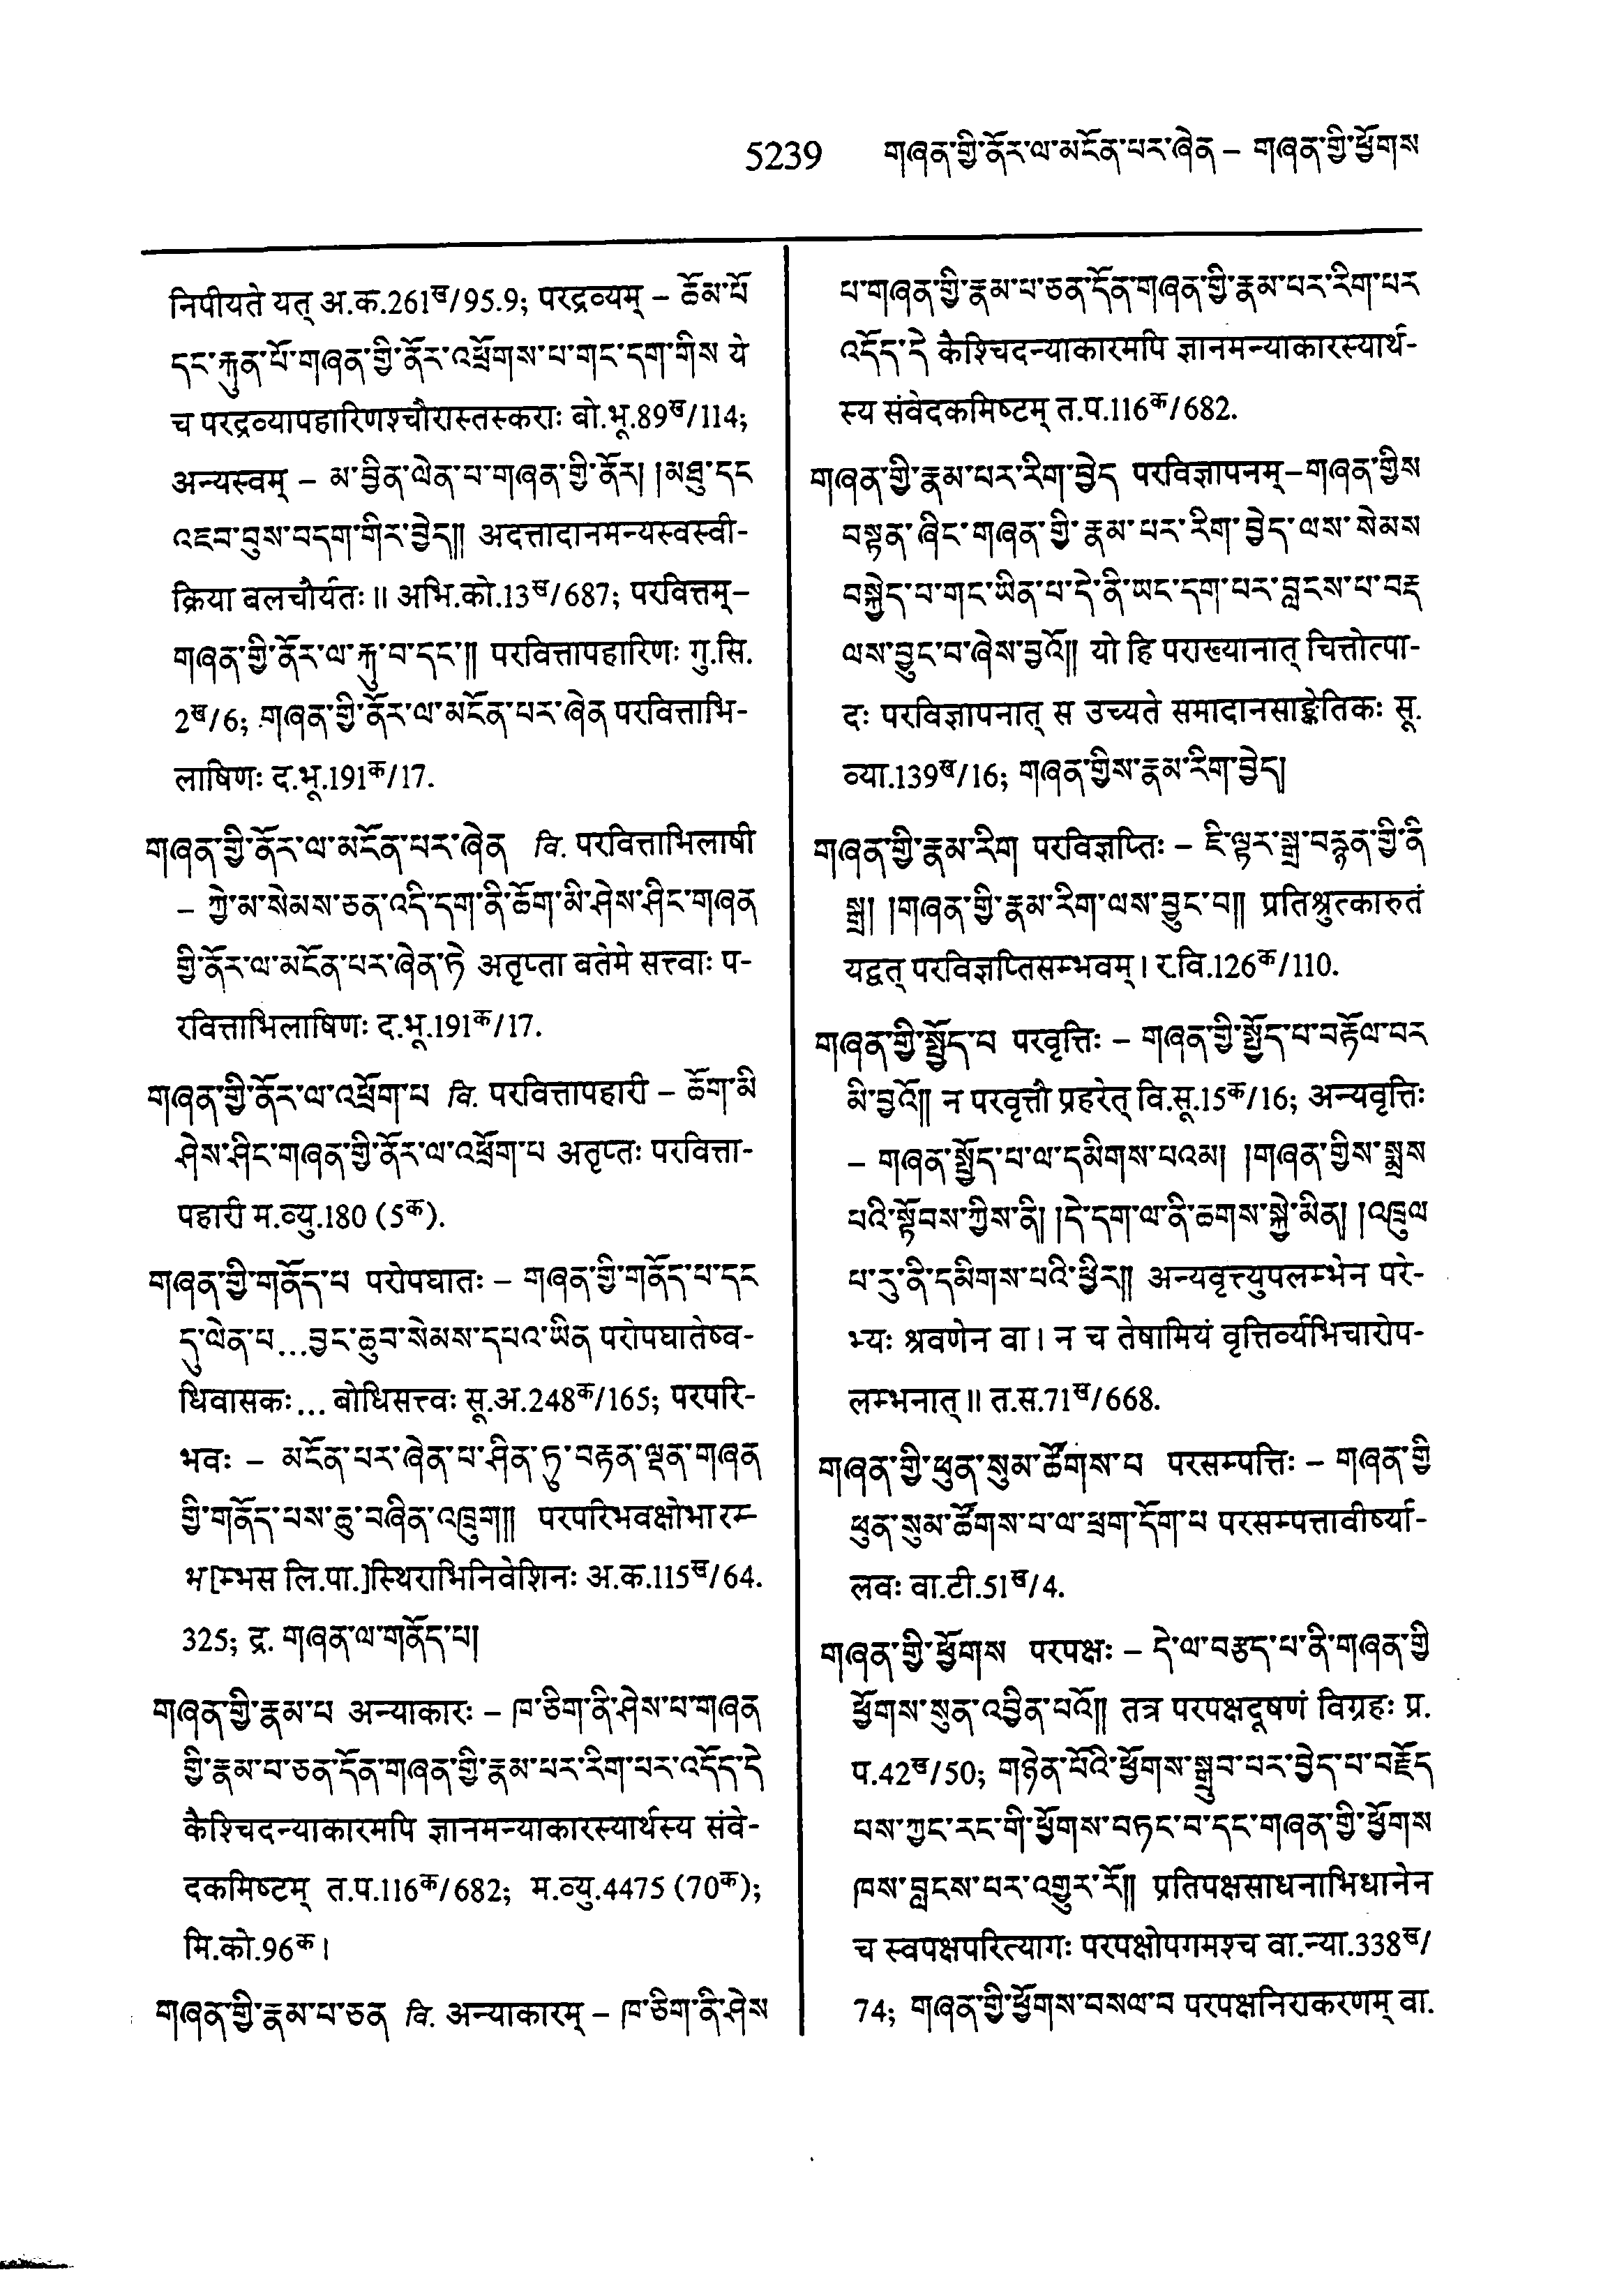 5239 གཞན་གྱི་ནོར་ལ་མངོན་པར་ཞེན – གཞན་གྱི་ཕྱོགས
निपीयते यत् अ.क.261ख/95.9; परद्रव्यम् – ཆོམ་པོ
དང་རྐུན་པོ་གཞན་གྱི་ནོར་འཕྲོགས་པ་གང་དག་གིས ये
च परद्रव्यापहारिणश्चौरास्तस्कराः बो.भू.89ख/114;
अन्यस्वम् – མ་བྱིན་ལེན་པ་གཞན་གྱི་ནོར། །མཐུ་དང
འཇབ་བུས་བདག་གིར་བྱེད།། अदत्तादानमन्यस्वस्वी-
क्रिया बलचौर्यतः ॥ अभि.को.13ख/687; परवित्तम्–
གཞན་གྱི་ནོར་ལ་རྐུ་བ་དང་།། परवित्तापहारिणः गु.सि.
2ख/6; གཞན་གྱི་ནོར་ལ་མངོན་པར་ཞེན परवित्ताभि-
लाषिणः द.भू.191क/17.
གཞན་གྱི་ནོར་ལ་མངོན་པར་ཞེན वि. परवित्ताभिलाषी
– ཀྱེ་མ་སེམས་ཅན་འདི་དག་ནི་ཆོག་མི་ཤེས་ཤིང་གཞན
གྱི་ནོར་ལ་མངོན་པར་ཞེན་ཏེ अतृप्ता बतेमे सत्त्वाः प-
रवित्ताभिलाषिणः द.भू.191क/17.
གཞན་གྱི་ནོར་ལ་འཕྲོག་པ वि. परवित्तापहारी – ཆོག་མི
ཤེས་ཤིང་གཞན་གྱི་ནོར་ལ་འཕྲོག་པ अतृप्तः परवित्ता-
पहारी म.व्यु.180 (5क).
གཞན་གྱི་གནོད་པ परोपघातः – གཞན་གྱི་གནོད་པ་དང
དུ་ལེན་པ...བྱང་ཆུབ་སེམས་དཔའ་ཡིན परोपघातेष्व-
धिवासकः... बोधिसत्त्वः सू.अ.248क/165; परपरि-
भवः – མངོན་པར་ཞེན་པ་ཤིན་ཏུ་བརྟན་ལྡན་གཞན
གྱི་གནོད་པས་ཆུ་བཞིན་འཁྲུག།། परपरिभवक्षोभारम्-
भ[म्भस लि.पा.]स्थिराभिनिवेशिनः अ.क.115ख/64.
325; द्र. གཞན་ལ་གནོད་པ།
གཞན་གྱི་རྣམ་པ अन्याकारः – ཁ་ཅིག་ནི་ཤེས་པ་གཞན
གྱི་རྣམ་པ་ཅན་དོན་གཞན་གྱི་རྣམ་པར་རིག་པར་འདོད་དེ
कैश्चिदन्याकारमपि ज्ञानमन्याकारस्यार्थस्य संवे-
दकमिष्टम् त.प.116क/682; म.व्यु.4475 (70क);
मि.को.96क।
གཞན་གྱི་རྣམ་པ་ཅན वि. अन्याकारम् – ཁ་ཅིག་ནི་ཤེས
པ་གཞན་གྱི་རྣམ་པ་ཅན་དོན་གཞན་གྱི་རྣམ་པར་རིག་པར
འདོད་དེ कैश्चिदन्याकारमपि ज्ञानमन्याकारस्यार्थ-
स्य संवेदकमिष्टम् त.प.116क/682.
གཞན་གྱི་རྣམ་པར་རིག་བྱེད परविज्ञापनम्–གཞན་གྱིས
བསྟན་ཞིང་གཞན་གྱི་རྣམ་པར་རིག་བྱེད་ལས་སེམས
བསྐྱེད་པ་གང་ཡིན་པ་དེ་ནི་ཡང་དག་པར་བླངས་པ་བརྡ
ལས་བྱུང་བ་ཞེས་བྱའོ།། यो हि पराख्यानात् चित्तोत्पा-
दः परविज्ञापनात् स उच्यते समादानसाङ्केतिकः सू.
व्या.139ख/16; གཞན་གྱིས་རྣམ་རིག་བྱེད།
གཞན་གྱི་རྣམ་རིག परविज्ञप्तिः – ཇི་ལྟར་སྒྲ་བརྙན་གྱི་ནི
སྒྲ། །གཞན་གྱི་རྣམ་རིག་ལས་བྱུང་བ།། प्रतिश्रुत्कारुतं
यद्वत् परविज्ञप्तिसम्भवम्। र.वि.126क/110.
གཞན་གྱི་སྤྱོད་པ परवृत्तिः – གཞན་གྱི་སྤྱོད་པ་བརྟོལ་བར
མི་བྱའོ།། न परवृत्तौ प्रहरेत् वि.सू.15क/16; अन्यवृत्तिः
– གཞན་སྤྱོད་པ་ལ་དམིགས་པའམ། །གཞན་གྱིས་སྨྲས
པའི་སྟོབས་ཀྱིས་ནི། །དེ་དག་ལ་ནི་ཆགས་སྐྱེ་མིན། །འཁྲུལ
པ་རུ་ནི་དམིགས་པའི་ཕྱིར།། अन्यवृत्त्युपलम्भेन परे-
भ्यः श्रवणेन वा। न च तेषामियं वृत्तिर्व्यभिचारोप-
लम्भनात्॥ त.स.71ख/668.
གཞན་གྱི་ཕུན་སུམ་ཚོགས་པ परसम्पत्तिः – གཞན་གྱི
ཕུན་སུམ་ཚོགས་པ་ལ་ཕྲག་དོག་པ परसम्पत्तावीर्ष्या-
लवः वा.टी.51ख/4.
གཞན་གྱི་ཕྱོགས परपक्षः – དེ་ལ་བརྩད་པ་ནི་གཞན་གྱི
ཕྱོགས་སུན་འབྱིན་པའོ།། तत्र परपक्षदूषणं विग्रहः प्र.
प.42ख/50; གཉེན་པོའི་ཕྱོགས་སྒྲུབ་པར་བྱེད་པ་བརྗོད
པས་ཀྱང་རང་གི་ཕྱོགས་བཏང་བ་དང་གཞན་གྱི་ཕྱོགས
ཁས་བླངས་པར་འགྱུར་རོ།། प्रतिपक्षसाधनाभिधानेन
च स्वपक्षपरित्यागः परपक्षोपगमश्च वा.न्या.338ख/
74; གཞན་གྱི་ཕྱོགས་བསལ་བ परपक्षनिराकरणम् वा.